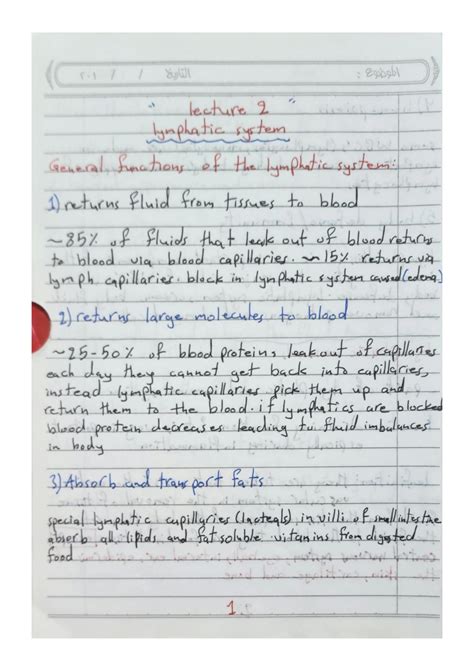 الموضوع : التاريخ / / ٢٠١
" lecture 2 "
lymphatic system
General functions of the lymphatic system:
1) returns fluid from tissues to blood
~85% of fluids that leak out of blood returns
to blood via blood capillaries. ~ 15% returns via
lymph capillaries. block in lymphatic system caused (edema)
2) returns large molecules to blood
~25-50% of blood proteins leak out of capillaries
each day they cannot get back into capillaries,
instead lymphatic capillaries pick them up and
return them to the blood. if lymphatics are blocked
blood protein decreases leading to fluid imbalances
in body
3) Absorb and transport fats
special lymphatic capillaries (lacteals) in villi of small intestine
absorb all lipids and fat soluble vitamins from digested
food
1